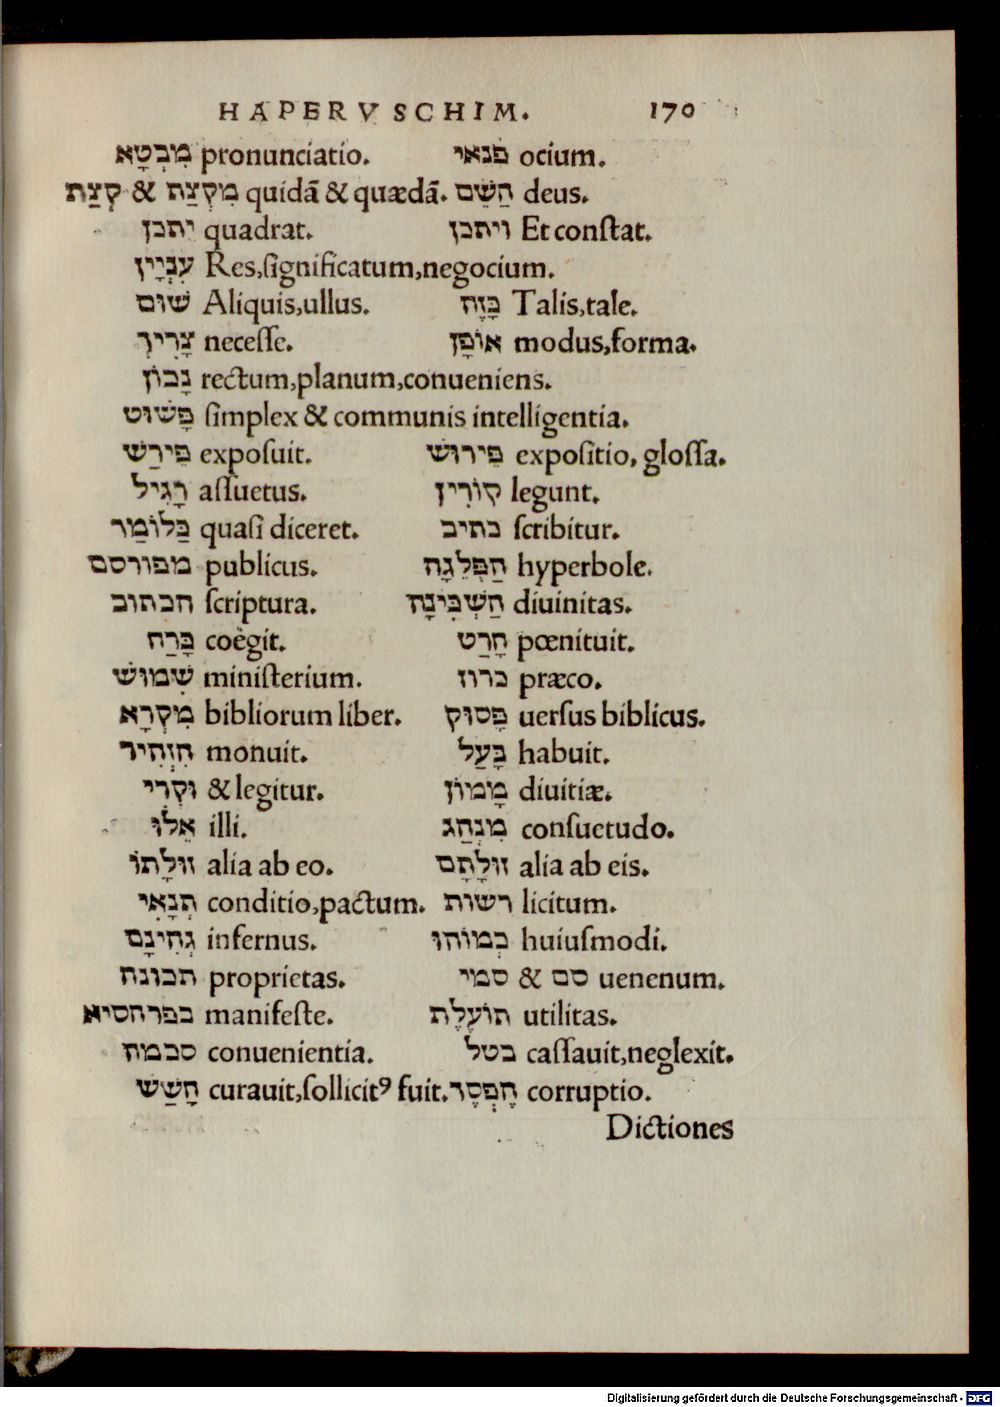 HAPERVSCHIM. 170
מִבְטָא pronunciatio. פנאי ocium.
קְצַת & מִקְצַת quidā & quædā. הַשֵּׁם deus.
יתכן quadrat. ויתכן Et conſtat.
עִנְיָין Res,ſignificatum,negocium.
שׁוּם Aliquis,ullus. כָּזֶה Talis,tale.
צָרִיךְ neceſſe. אוֹפָן modus,forma.
נָכוֹן rectum,planum,conueniens.
פָּשׁוּט ſimplex & communis intelligentia.
פֵּירַשׁ expoſuit. פֵּירוּשׁ expoſitio, gloſſa.
רָגִיל aſſuetus. קוֹרִין legunt.
כְּלוֹמַר quaſi diceret. כתיב ſcribitur.
מפורסם publicus. הַפְלֵגָה hyperbole.
הכתוב ſcriptura. הַשְׁכִּינָה diuinitas.
כָּרַח coègit. חָרַט pœnituit.
שִׁמוּשׁ miniſterium. כרוז præco.
מִקְרָא bibliorum liber. פָּסוּק uerſus biblicus.
הִזְהִיר monuit. בָּעַל habuit.
וְקְרִי & legitur. מָמוֹן diuitiæ.
אֵלּוּ illi. מִנְהַג conſuetudo.
זוּלָתוֹ alia ab eo. זוּלָתָם alia ab eis.
תְּנָאִי conditio,pactum. רשות licitum.
גְּהִינָּם infernus. כְּמוֹהוּ huiuſmodi.
תכונה proprietas. סמי & סם uenenum.
בפרהסיא manifeſte. תּוֹעֶלֶת utilitas.
סכמה conuenientia. בטל caſſauit,neglexit.
חָשַׁשׁ curauit,ſollicitꝰ fuit. הֶפְסֶד corruptio.
Dictiones
Digitalisierung gefördert durch die Deutsche Forschungsgemeinschaft - DFG